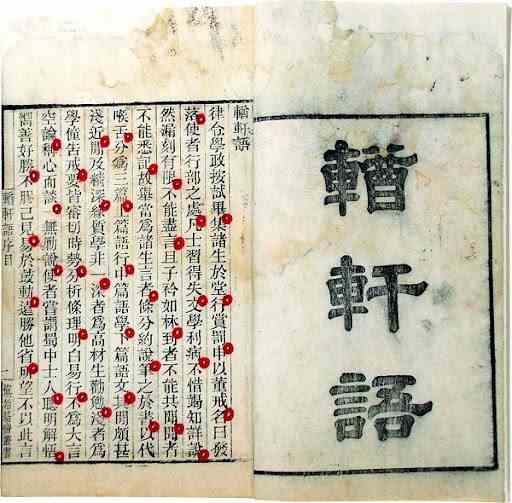 輶軒語
輶軒語
律令學政按試畢集諸生於堂行賞罰申以董戒名曰發
落使者行部之處凡士習得失文學利病不惜竭知詳說
然漏刻有限不能盡言且子衿如林到者不能共聞聞者
不能悉記故舉當為諸生言者條分約說筆之於書以代
喉舌分為三篇上篇語行中篇語學下篇語文其間頗甚
淺近間及精深緣質學非一深者為高材生勸勉淺者為
學僮告戒要皆審切時勢分析條理明白易行不為大言
空論稱心而談一無勦說使者嘗謂蜀中士人聰明解悟
嚮善好勝不膠己見易於鼓動遠勝他省所望不以此言
輶軒語序目